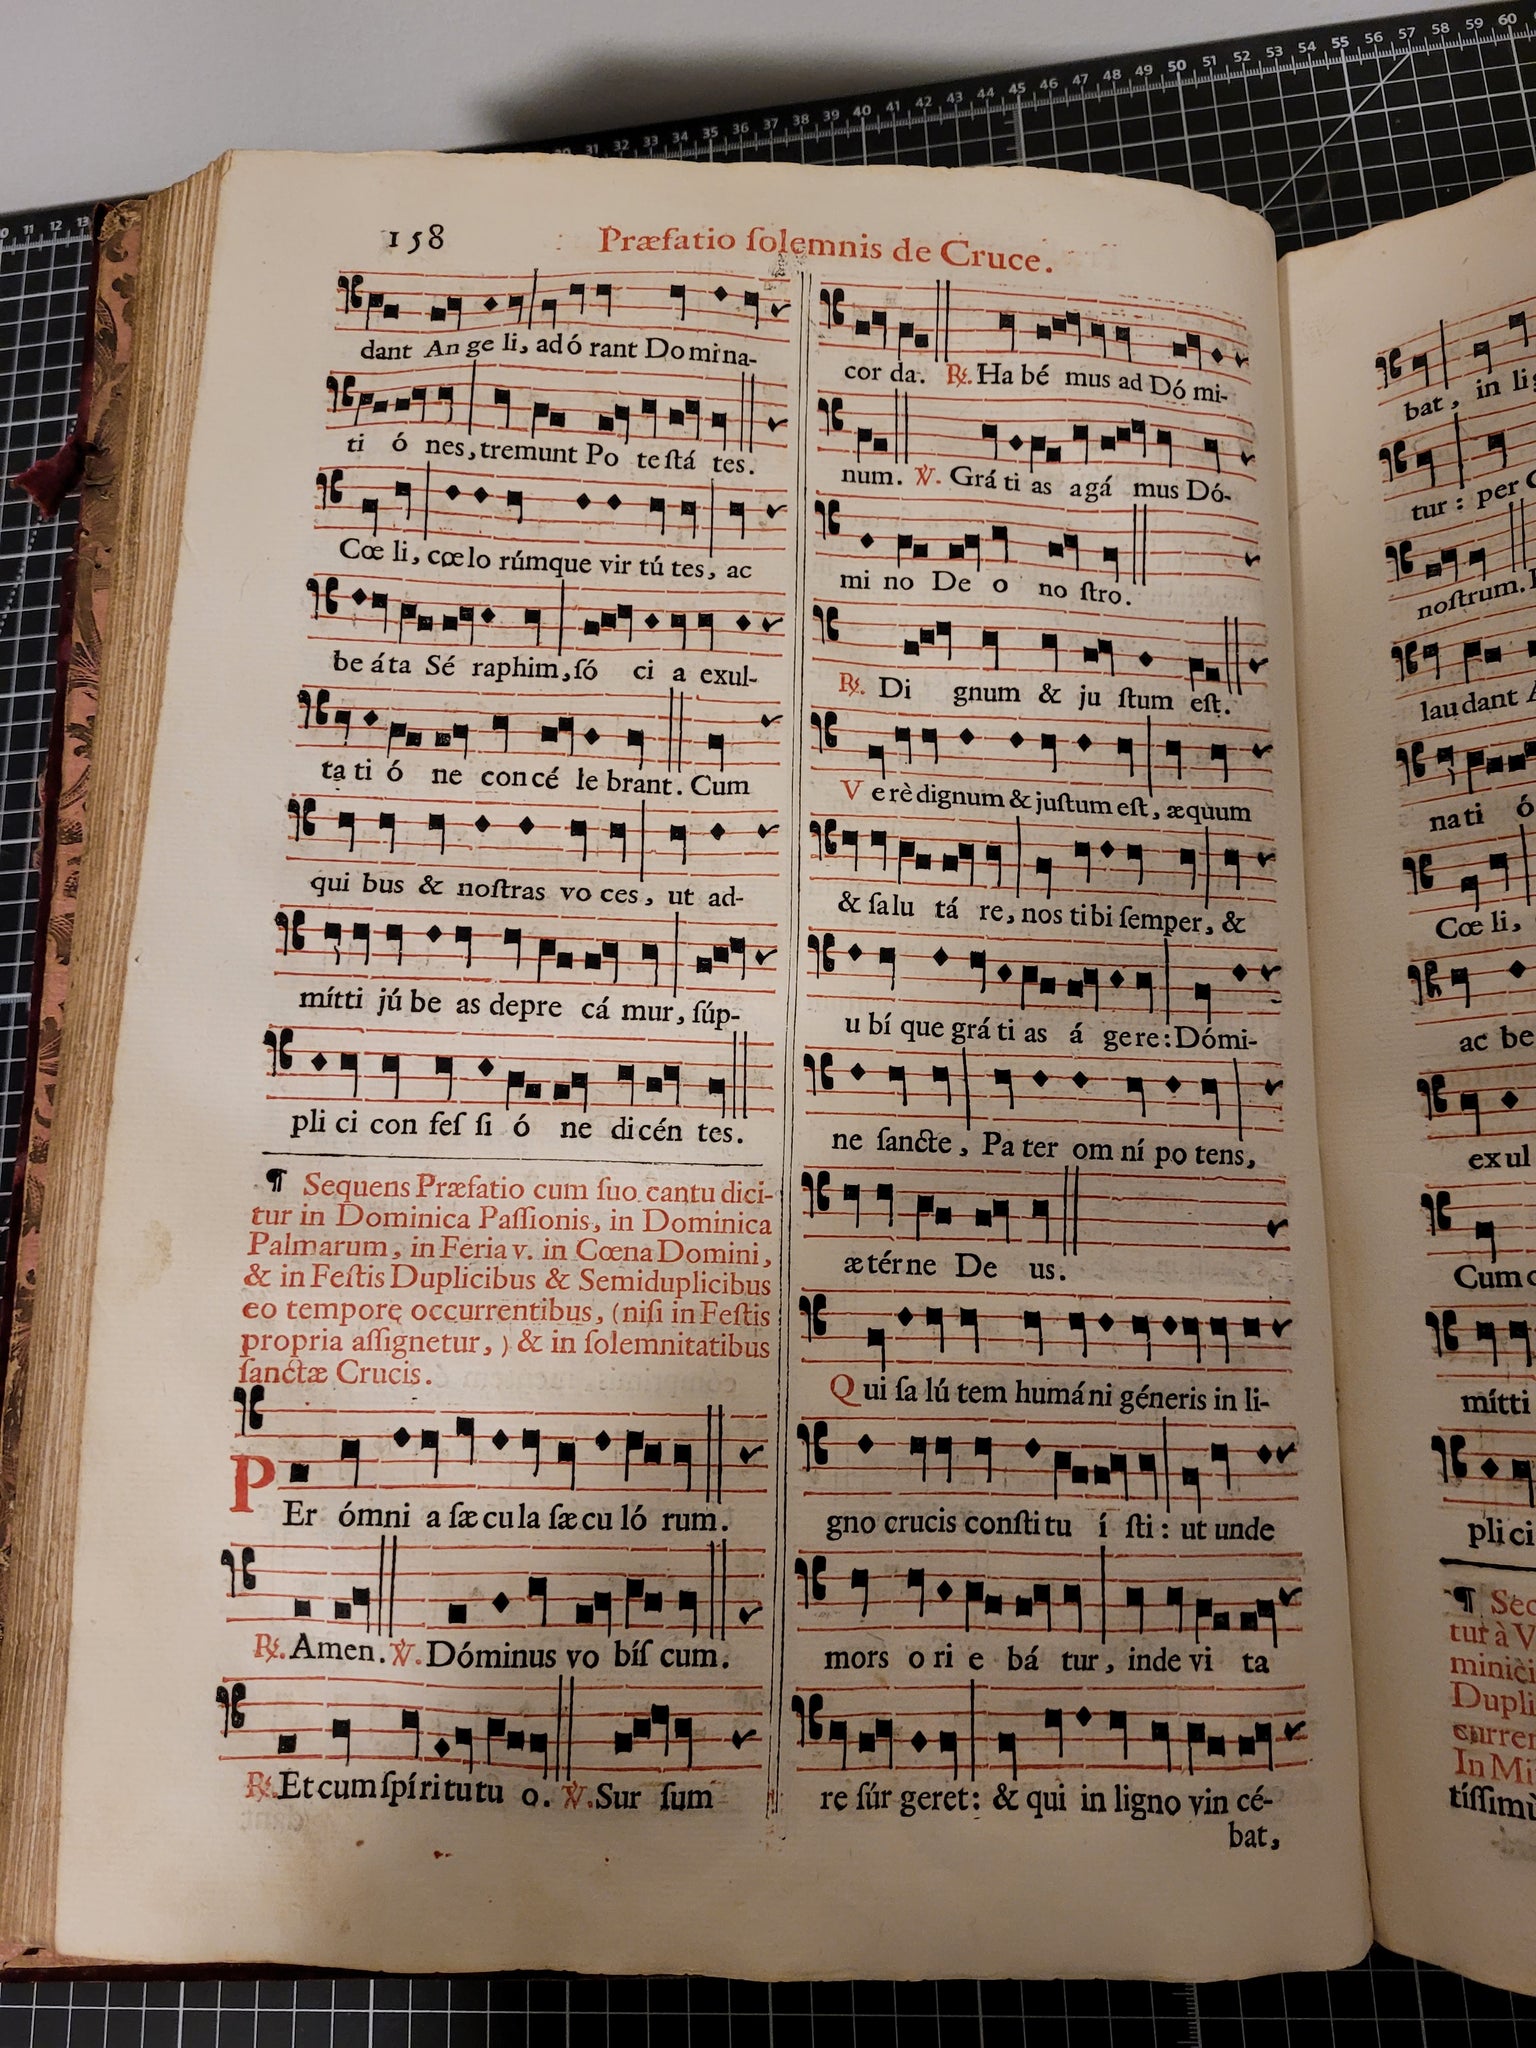 158
Præfatio ſolemnis de Cruce.
dant An ge li, ad ó rant Do mi na-
ti ó nes, tremunt Po te ſtá tes.
Cœ li, cœ lo rúmque vir tú tes, ac
be áta Sé raphim, ſó ci a exul-
ta ti ó ne con cé le brant. Cum
qui bus & noſtras vo ces, ut ad-
mítti jú be as depre cá mur, ſúp-
pli ci con feſ ſi ó ne di cén tes.
¶ Sequens Præfatio cum ſuo cantu dici-
tur in Dominica Paſſionis, in Dominica
Palmarum, in Feria v. in Cœna Domini,
& in Feſtis Duplicibus & Semiduplicibus
eo tempore occurrentibus, (niſi in Feſtis
propria aſſignetur,) & in ſolemnitatibus
ſanctæ Crucis.
PEr ómni a ſæ cu la ſæ cu ló rum.
℟. Amen. ℣. Dóminus vo bíſ cum.
℟. Et cum ſpí ri tu tu o. ℣. Sur ſum
cor da. ℟. Ha bé mus ad Dó mi-
num. ℣. Grá ti as a gá mus Dó-
mi no De o no ſtro.
℟. Di gnum & ju ſtum eſt.
V e rè dignum & juſtum eſt, æquum
& ſa lu tá re, nos ti bi ſemper, &
u bí que grá ti as á ge re: Dómi-
ne ſancte, Pa ter om ní po tens,
æ tér ne De us.
Q ui ſa lú tem humá ni géneris in li-
gno crucis conſti tu í ſti: ut unde
mors o ri e bá tur, inde vi ta
re ſúr geret: & qui in ligno vin cé-
bat,
bat, in lig
tur: per C
noſtrum.
lau dant A
na ti ó
Cœ li,
ac be
exul
Cum
mítti
pli ci
¶ Seq
tur à V
minici
Dupli
curren
In Mi
tíſſimu